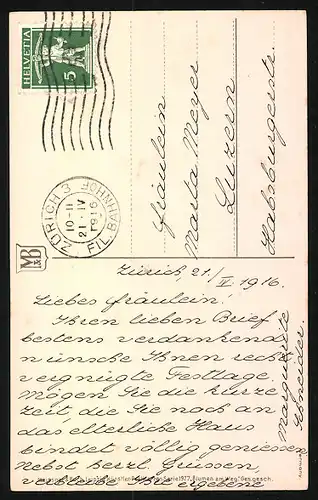 HELVETIA
5
ZÜRICH 3
10-11
21·IV
1916
FIL. BAHNHOF
Fräulein
Marta Meyer
Luzern
Habsburgerstr.
M&B
Zürich, 21./IV 1916.
Liebes Fräulein!
Ihren lieben Brief
bestens verdankend
wünsche Ihnen recht
vergnügte Festtage.
Mögen Sie die kurze
Zeit die Sie noch an
das elterliche Haus
bindet völlig geniessen.
Nebst herzl. Grüssen,
verbleibe Ihre ergebene
Marguerite
Schneider.
"Blumen am Weg" Ges. gesch.